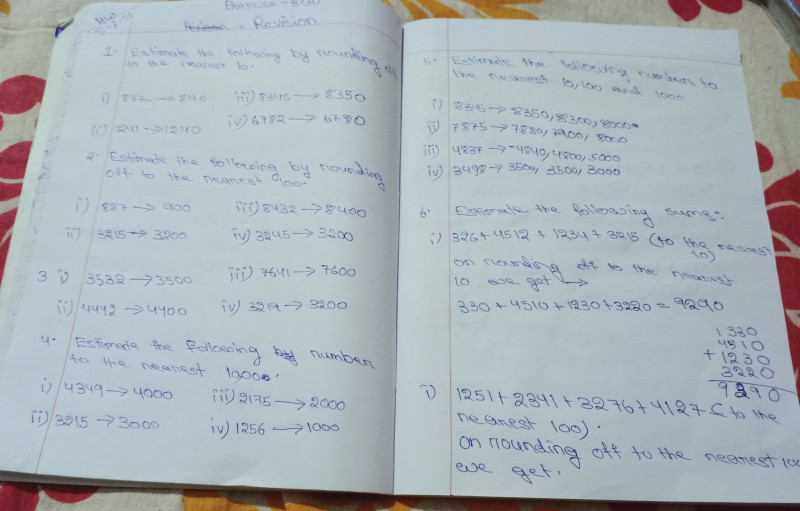 Exercise - 8(A)
Revision
1. Estimate the following by rounding off
to the nearest 10.
i) 842 → 840 iii) 8345 → 8350
ii) 1241 → 1240 iv) 6782 → 6780
2. Estimate the following by rounding
off to the nearest 100.
i) 887 → 900 iii) 8432 → 8400
ii) 3215 → 3200 iv) 3245 → 3200
3 i) 3532 → 3500 iii) 7641 → 7600
ii) 4442 → 4400 iv) 3219 → 3200
4. Estimate the following by number
to the nearest 1000.
i) 4349 → 4000 iii) 2175 → 2000
ii) 3215 → 3000 iv) 1256 → 1000
5. Estimate the following number to
the nearest 10, 100 and 1000
i) 8345 → 8350, 8300, 8000
ii) 7875 → 7880, 7900, 8000
iii) 4837 → 4840, 4800, 5000
iv) 3498 → 3500, 3500, 3000
6. Estimate the following sums:
i) 326 + 4512 + 1234 + 3215 (to the nearest
10)
on rounding off to the nearest
10 we get →
330 + 4510 + 1230 + 3220 = 9290
1330
4510
+ 1230
3220
9290
i) 1251 + 2341 + 3276 + 4127 (to the
nearest 100).
on rounding off to the nearest 100
we get.